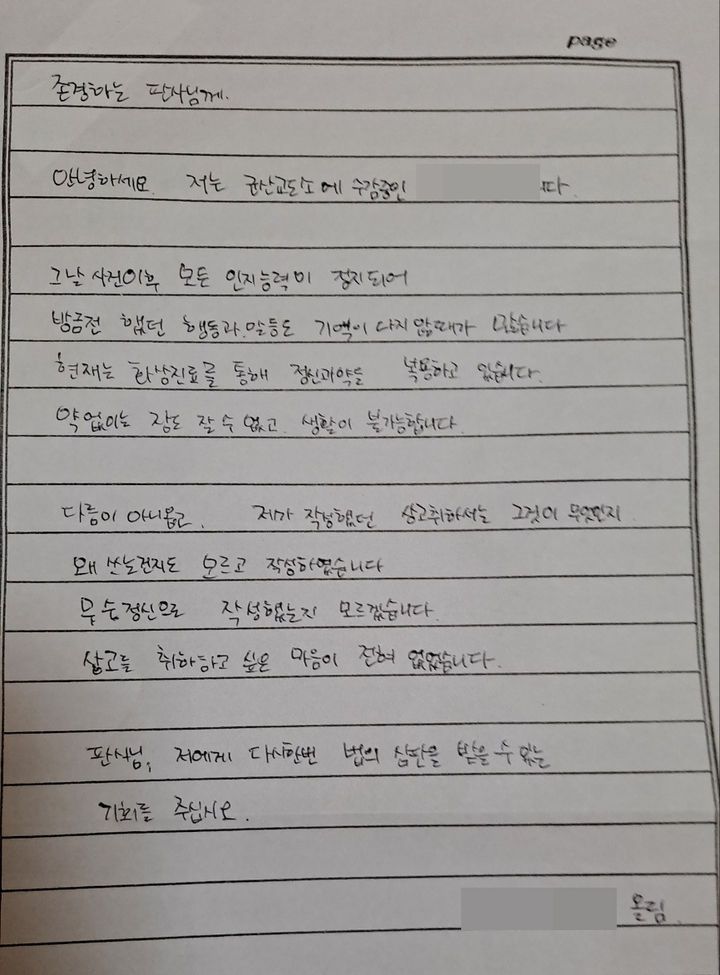 page
존경하는 판사님께.
안녕하세요. 저는 군산교도소에 수감중인 니다.
그날 사건이후 모든 인지능력이 정지되어
방금전 했던 행동과.말등도 기억이 나지 않을때가 많습니다
현재는 화상진료를 통해 정신과약을 복용하고 있습니다.
약 없이는 잠도 잘 수 없고. 생활이 불가능합니다.
다름이 아니옵고. 제가 작성했던 상고취하서는 그것이 무엇인지.
왜 쓰는건지도 모르고 작성하였습니다
무슨정신으로 작성했는지 모르겠습니다.
상고를 취하하고 싶은 마음이 전혀 없었습니다.
판사님, 저에게 다시한번 법의 심판을 받을 수 있는
기회를 주십시오.
올림.